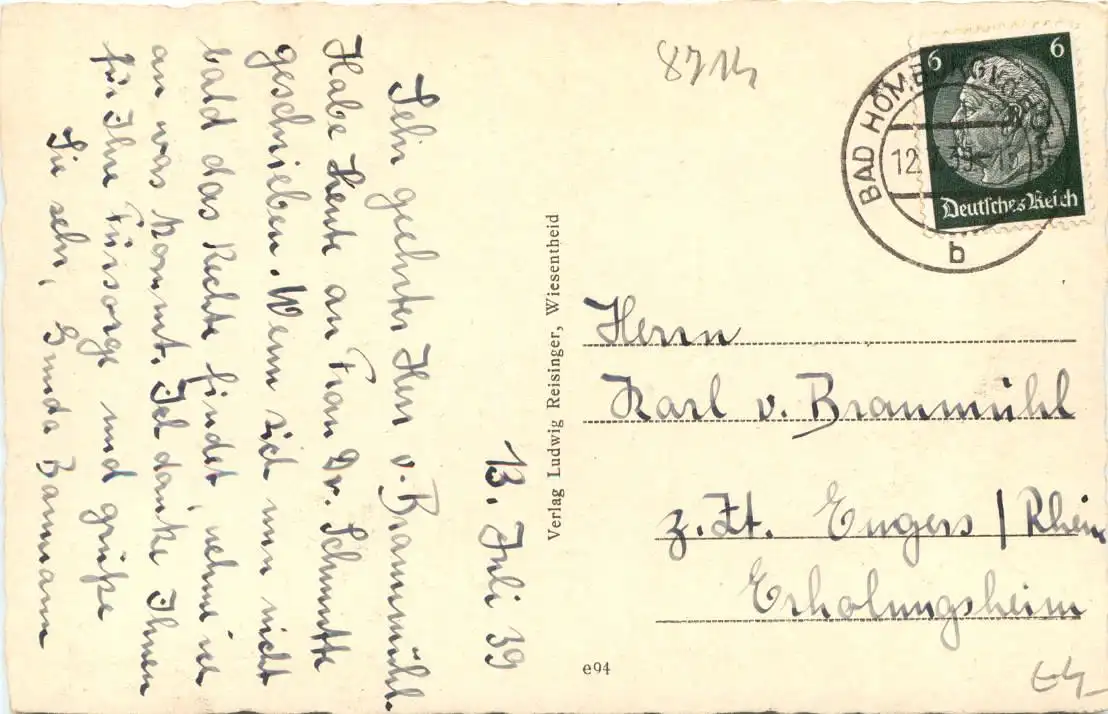 13. Juli 39
Sehr geehrter Herr v. Braunmühl.
Habe heute an Frau Dr. Schmutte
geschrieben. Wenn sich nun nicht
bald das Rechte findet, nehme ich
an was kommt. Ich danke Ihnen
für Ihre Fürsorge und grüße
Sie sehr, Baumann
Verlag Ludwig Reisinger, Wiesentheid
e94
6 6
Deutsches Reich
BAD HOMBURG
12.
b
Herrn
Karl v. Braunmühl
z.Zt. Engers / Rhein
Erholungsheim